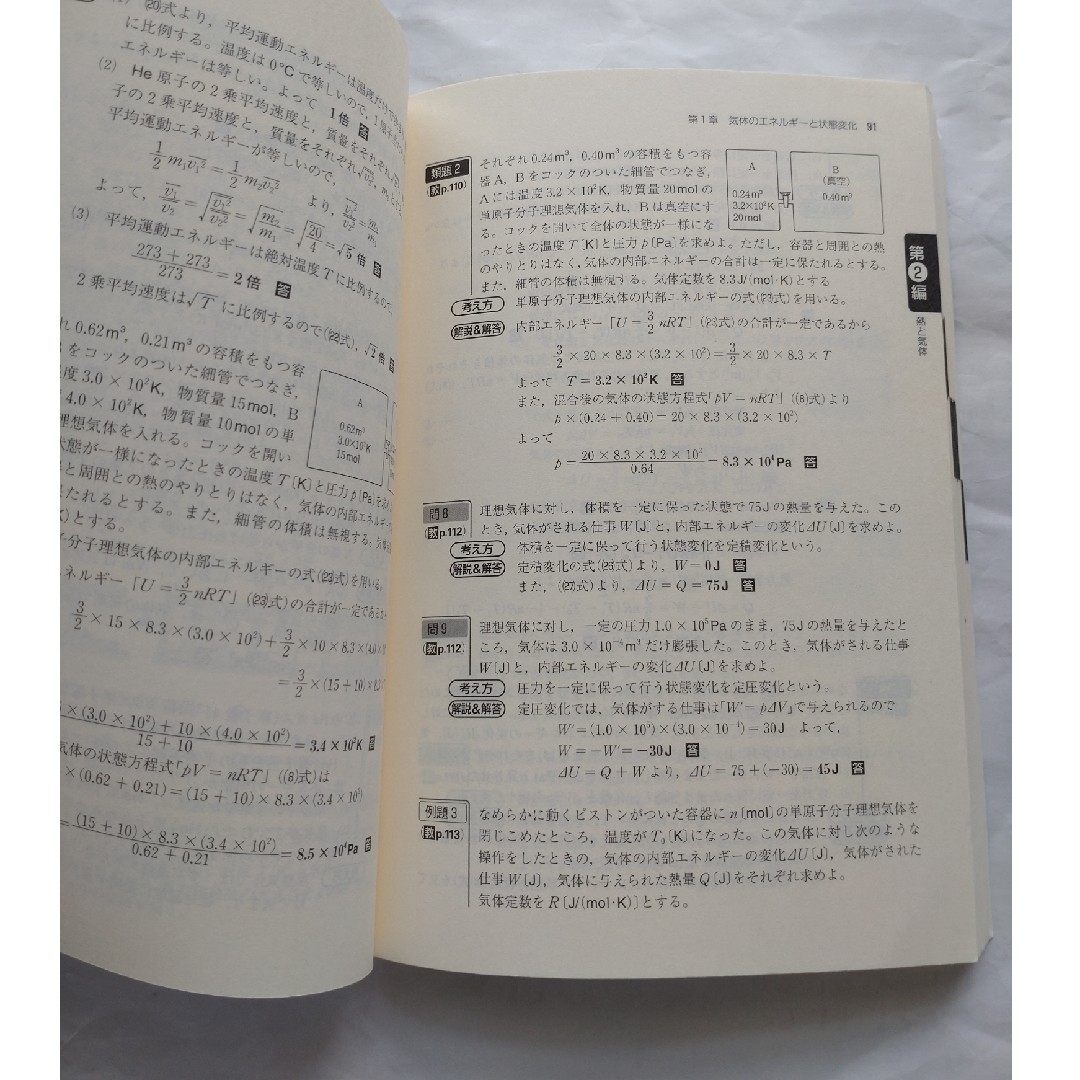 (20)式より,平均運動エネルギーは温度だけ
に比例する。温度は0℃で等しいので,1
エネルギーは等しい。よって 1倍 答
(2) He原子の2乗平均速度と,質量をそれぞれ
子の2乗平均速度と,質量をそれぞれ
平均運動エネルギーが等しいので,
1/2 m₁v₁² = 1/2 m₂v₂² より, v₁²/v₂² = m₂/m₁
よって, v₁/v₂ = √(v₁²/v₂²) = √(m₂/m₁) = √(20/4) = √5倍 答
(3) 平均運動エネルギーは絶対温度Tに比例するので
(273 + 273)/273 = 2倍 答
2乗平均速度は√Tに比例するので(22)式), √2倍 答
れ0.62m³, 0.21m³の容積をもつ容
をコックのついた細管でつなぎ,
度3.0 × 10²K, 物質量15mol, B
4.0 × 10²K, 物質量10molの単
理想気体を入れる。コックを開い
状態が一様になったときの温度T[K]と圧力p[Pa]を
と周囲との熱のやりとりはなく,気体の内部エネルギ
たれるとする。また,細管の体積は無視する。
)とする。
A
0.62m³
3.0×10²K
15mol
分子理想気体の内部エネルギーの式(23)式)を用いる。
ネルギー「U = 3/2 nRT」((23)式)の合計が一定であるか
3/2 × 15 × 8.3 × (3.0 × 10²) + 3/2 × 10 × 8.3 × (4.0 × 10
= 3/2 × (15 + 10) × 8.3
× (3.0 × 10²) + 10 × (4.0 × 10²)/15 + 10 = 3.4 × 10²K 答
気体の状態方程式「pV = nRT」((8)式)は
× (0.62 + 0.21) = (15 + 10) × 8.3 × (3.4 × 10²)
= (15 + 10) × 8.3 × (3.4 × 10²)/0.62 + 0.21 = 8.5 × 10⁴Pa 答
第1章 気体のエネルギーと状態変化 91
類題2
(教p.110)
それぞれ0.24m³, 0.40m³の容積をもつ容
器A, Bをコックのついた細管でつなぎ,
Aには温度3.2 × 10²K, 物質量20molの
単原子分子理想気体を入れ, Bは真空にす
る。コックを開いて全体の状態が一様にな
ったときの温度T[K]と圧力p[Pa]を求めよ。ただし,容器と周囲との熱
のやりとりはなく,気体の内部エネルギーの合計は一定に保たれるとする。
また,細管の体積は無視する。気体定数を8.3J/(mol·K)とする
A
0.24m³
3.2×10²K
20mol
B
(真空)
0.40m³
考え方 単原子分子理想気体の内部エネルギーの式(23)式)を用いる。
解説&解答 内部エネルギー「U = 3/2 nRT」((23)式)の合計が一定であるから
3/2 × 20 × 8.3 × (3.2 × 10²) = 3/2 × 20 × 8.3 × T
よって T = 3.2 × 10²K 答
また,混合後の気体の状態方程式「pV = nRT」((8)式)より
p × (0.24 + 0.40) = 20 × 8.3 × (3.2 × 10²)
よって
p = 20 × 8.3 × 3.2 × 10²/0.64 = 8.3 × 10⁴Pa 答
問8
(教p.112)
理想気体に対し,体積を一定に保った状態で75Jの熱量を与えた。この
とき,気体がされる仕事W[J]と,内部エネルギーの変化ΔU[J]を求めよ。
考え方 体積を一定に保って行う状態変化を定積変化という。
解説&解答 定積変化の式(26)式)より, W = 0J 答
また,(27)式)より, ΔU = Q = 75J 答
問9
(教p.112)
理想気体に対し,一定の圧力1.0 × 10⁵Paのまま,75Jの熱量を与えたと
ころ,気体は3.0 × 10⁻⁴m³だけ膨張した。このとき,気体がされる仕事
W[J]と,内部エネルギーの変化ΔU[J]を求めよ。
考え方 圧力を一定に保って行う状態変化を定圧変化という。
解説&解答 定圧変化では,気体がする仕事は「W′ = pΔV」で与えられるので
W′ = (1.0 × 10⁵) × (3.0 × 10⁻⁴) = 30J よって,
W = −W′ = −30J 答
ΔU = Q + Wより, ΔU = 75 + (−30) = 45J 答
例題3
(教p.113)
なめらかに動くピストンがついた容器にn[mol]の単原子分子理想気体を
閉じこめたところ,温度がT₀[K]になった。この気体に対し次のような
操作をしたときの,気体の内部エネルギーの変化ΔU[J],気体がされた
仕事W[J],気体に与えられた熱量Q[J]をそれぞれ求めよ。
気体定数をR[J/(mol·K)]とする。
第2編
熱と気体